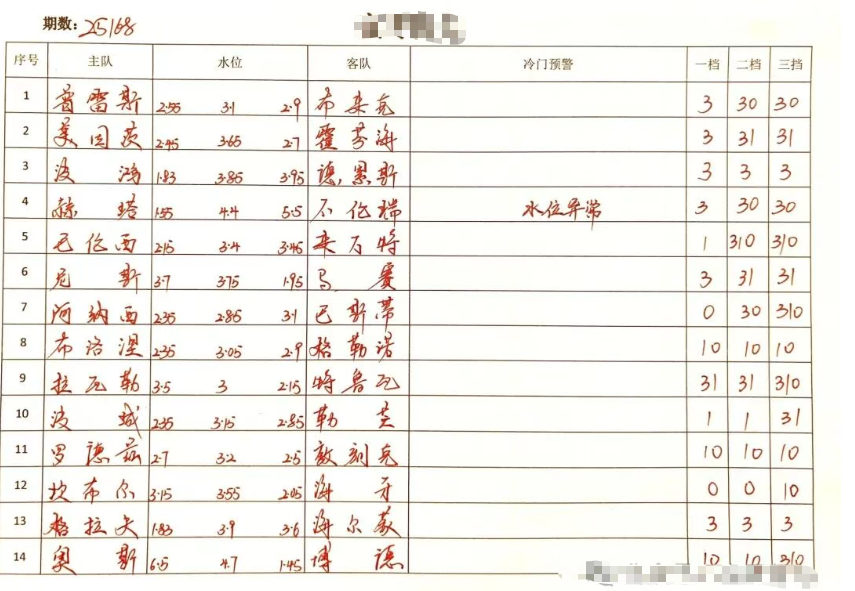 期数: 25168
序号 主队 水位 客队 冷门预警 一档 二档 三挡
1 普雷斯 2.55 3.1 2.9 布莱克 3 30 30
2 美因茨 2.45 3.65 2.7 霍芬海 3 31 31
3 波鸿 1.83 3.85 3.95 德累斯 3 3 3
4 赫塔 1.55 4.4 5.5 不伦瑞 水位异常 3 30 30
5 巴伦西 2.15 3.4 3.45 莱万特 1 310 310
6 尼斯 3.7 3.75 1.95 马赛 3 31 31
7 阿纳西 2.35 2.85 3.1 巴斯蒂 0 30 310
8 布洛涅 2.35 3.05 2.9 格勒诺 10 10 10
9 拉瓦勒 3.5 3 2.15 特鲁瓦 31 31 310
10 波城 2.35 3.15 2.85 勒芒 1 1 31
11 罗德兹 2.7 3.2 2.5 敦刻克 10 10 10
12 坎布尔 3.15 3.55 2.05 海牙 0 0 10
13 格拉夫 1.83 3.9 3.6 海尔蒙 3 3 3
14 奥斯 6.5 4.7 1.45 博德 10 10 310